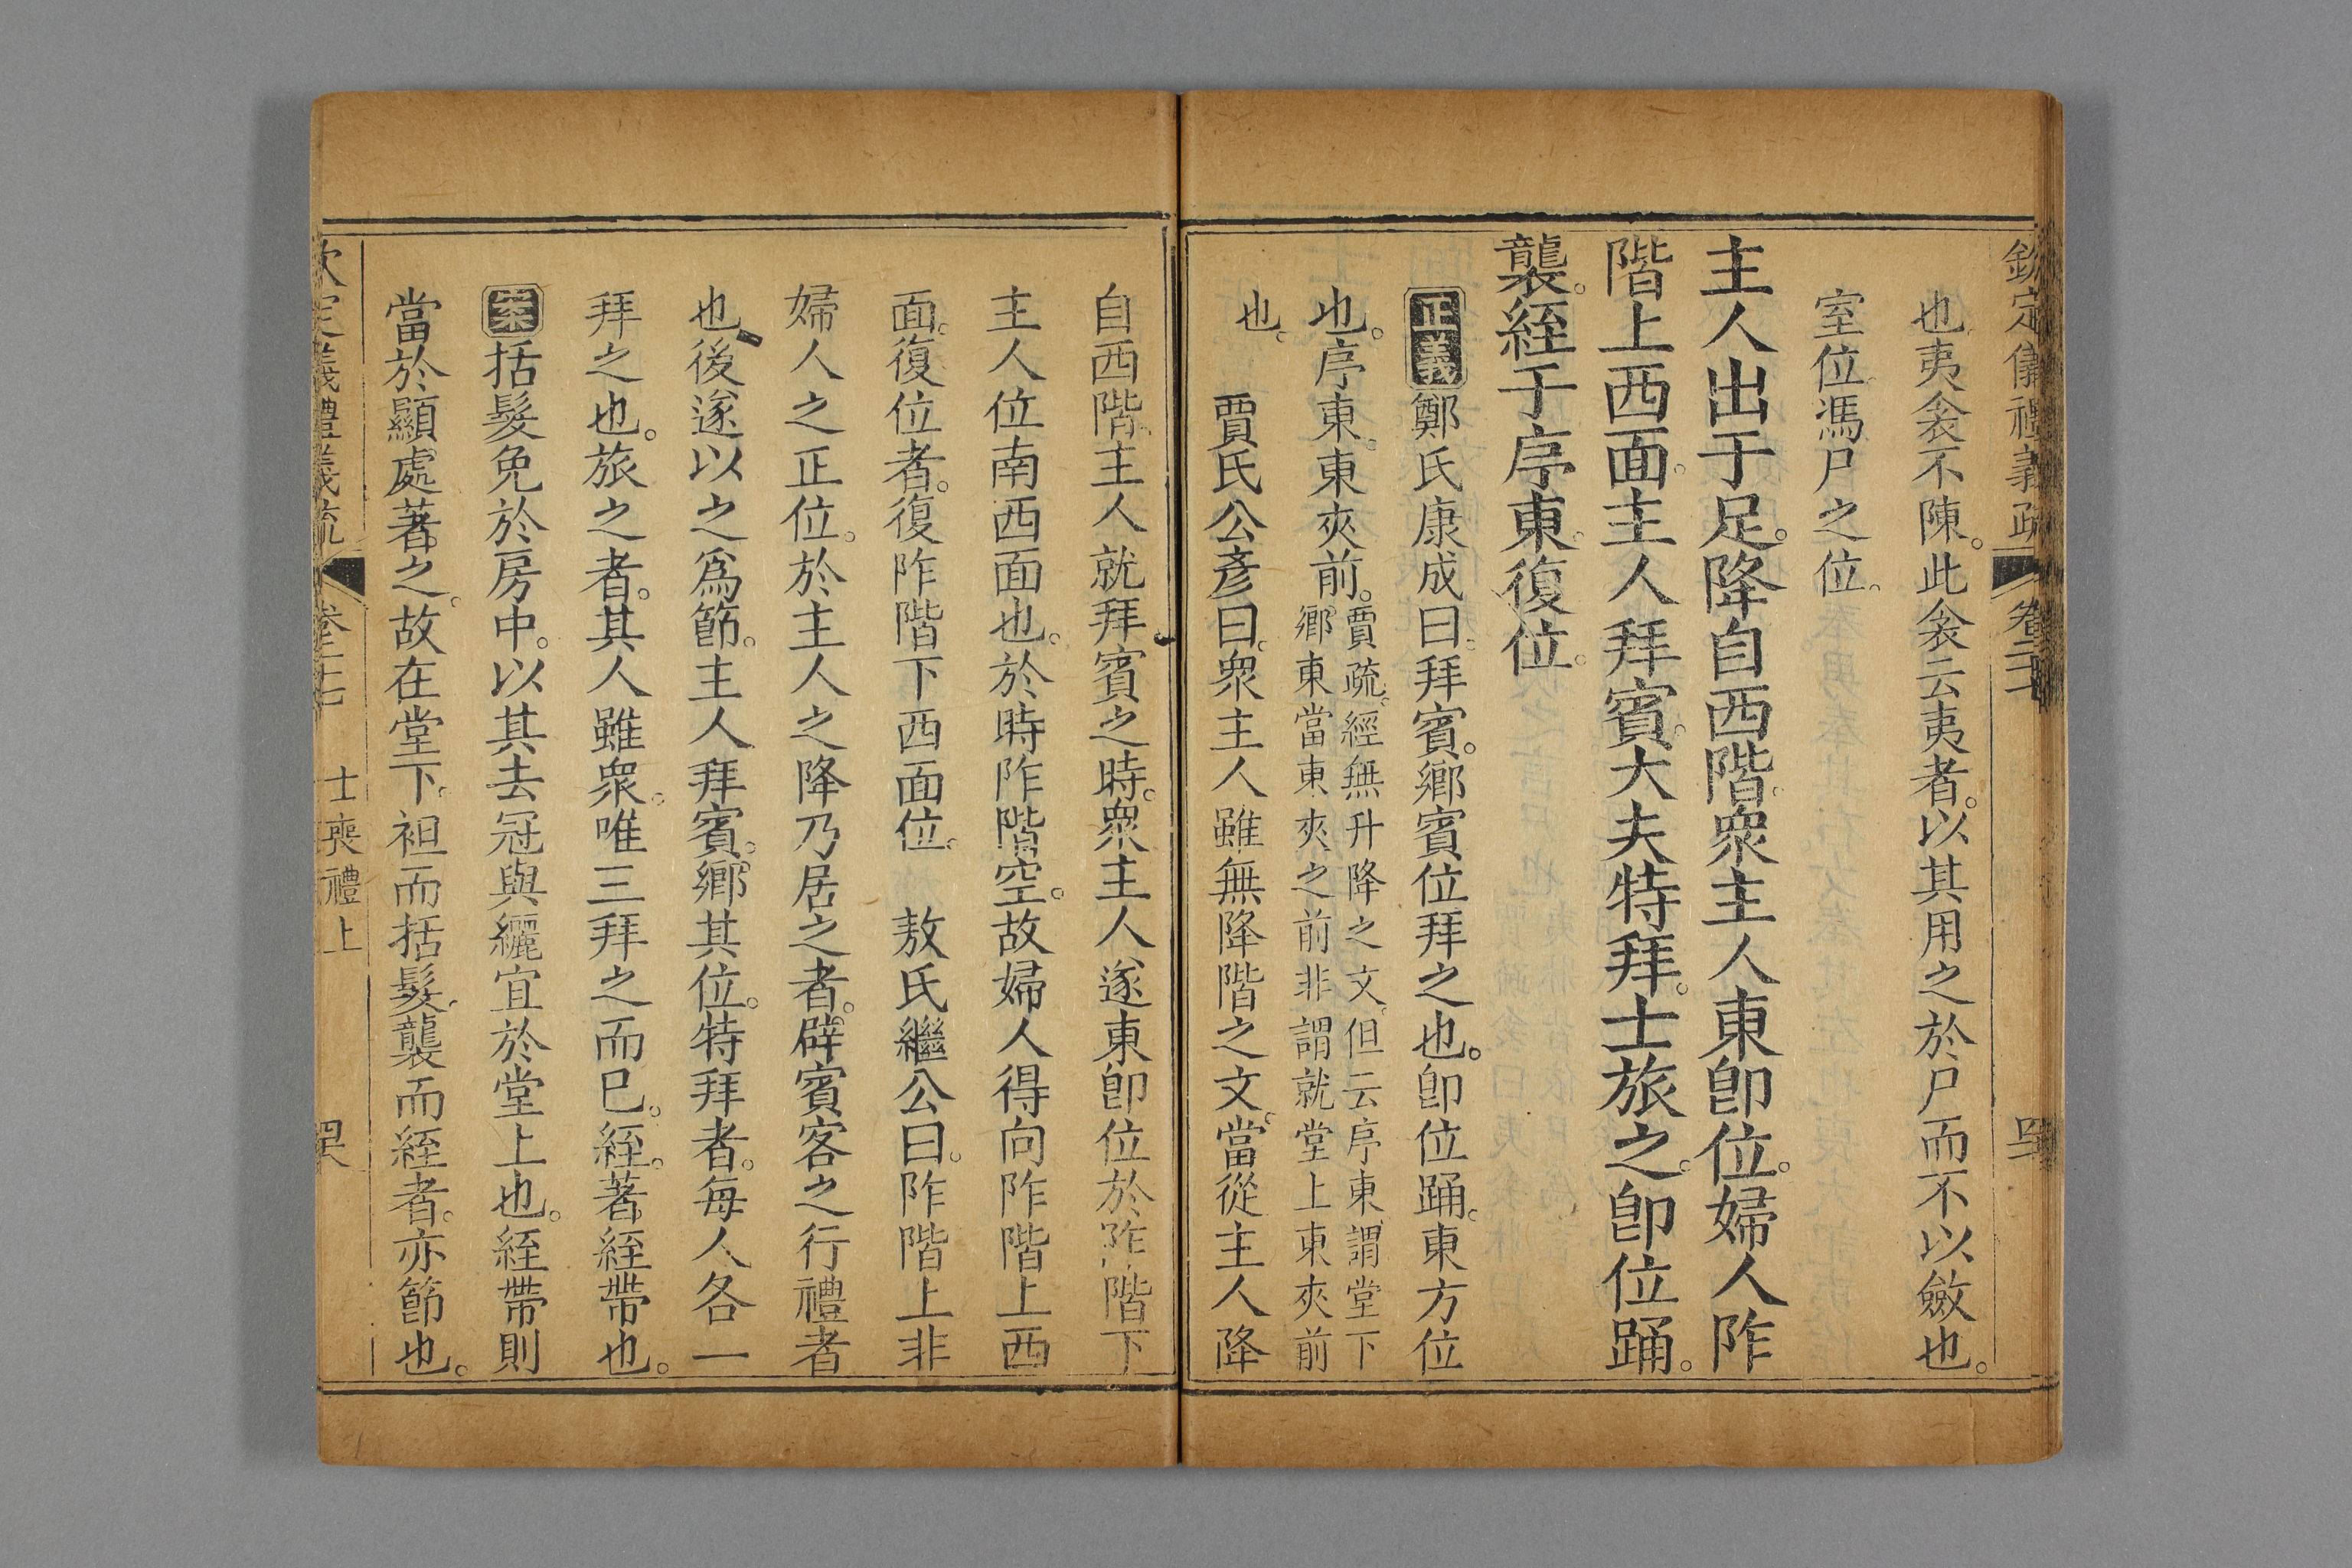 欽定儀禮義疏 卷二十
也夷衾不陳。此衾云夷者。以其用之於尸而不以斂也。
室位。馮尸之位。
主人出于足。降自西階。衆主人東卽位。婦人阼
階上西面。主人拜賓。大夫特拜。士旅之。卽位踊。
襲絰于序東。復位。
正義鄭氏康成曰。拜賓。鄉賓位拜之也。卽位踊。東方位
也。序東。東夾前。賈疏。經無升降之文。但云序東。謂堂下
鄉東當東夾之前。非謂就堂上東夾前
也。 賈氏公彥曰。衆主人雖無降階之文。當從主人降
自西階。主人就拜賓之時。衆主人遂東卽位於阼階下
主人位南西面也。於時阼階空。故婦人得向阼階上西
面。復位者。復阼階下西面位。 敖氏繼公曰。阼階上非
婦人之正位。於主人之降乃居之者。辟賓客之行禮者
也。後遂以之爲節。主人拜賓。鄉其位。特拜者。每人各一
拜之也。旅之者。其人雖衆。唯三拜之而已。絰。著絰帶也。
案括髮免於房中。以其去冠與纚宜於堂上也。絰帶則
當於顯處著之。故在堂下。袒而括髮。襲而絰者。亦節也。
欽定義禮義疏 卷二十七 士喪禮上